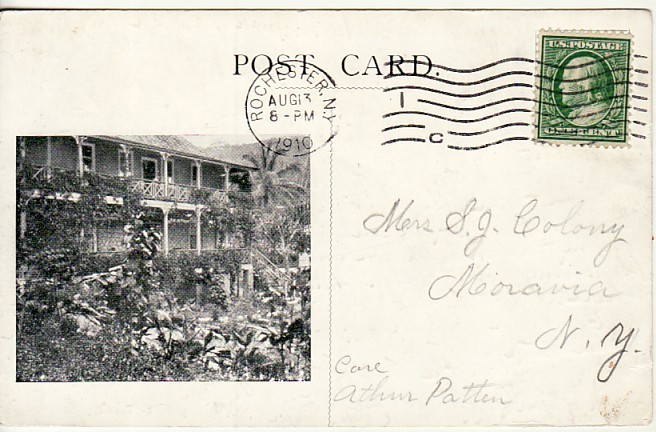 POST CARD.
U.S. POSTAGE
ROCHESTER, N.Y.
AUG 13
8 - PM
1910
1
C
Mrs S. J. Colony
Moravia
N. Y.
Care
Athur Patten